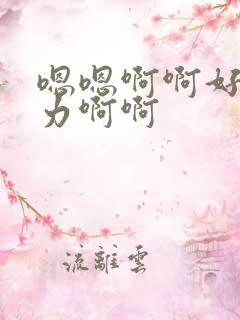 嗯嗯啊啊好
力啊啊
流離雲